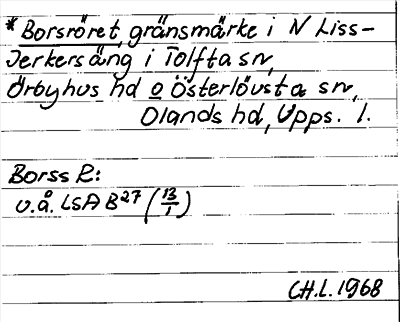 * Borsröret, gränsmärke i N Liss-
Jerkersäng i Tolfta sn,
Örbyhus hd o Österlövsta sn,
Olands hd, Upps. l.
Borss R:
u.å. LSA B27 (13/1)
CH.L. 1968